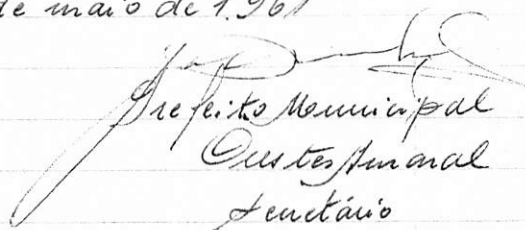 de maio de 1.961
Prefeito Municipal
Amaral
Secretário